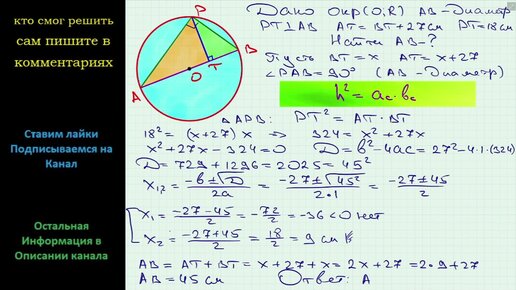 кто смог решить
сам пишите в
комментариях
Ставим лайки
Подписываемся на
Канал
Остальная
Информация в
Описании канала
P
B
T
O
A
Дано Окр(O,R) AB-Диаметр
PT⊥AB AT=BT+27см PT=18см
Найти AB-?
Пусть BT=x AT=x+27
∠PAB=90° (AB-Диаметр)
h²=ac·bc
△APB: PT²=AT·BT
18²=(x+27)x => 324=x²+27x
x²+27x-324=0 D=b²-4ac=27²-4·1·(324)
D=729+1296=2025=45²
x1,2=-b±√D/2a=-27±√45²/2·1=-27±45/2
x1=-27-45/2=-72/2=-36<0 нет
x2=-27+45/2=18/2=9см
AB=AT+BT=x+27+x=2x+27=2·9+27
AB=45см Ответ: A